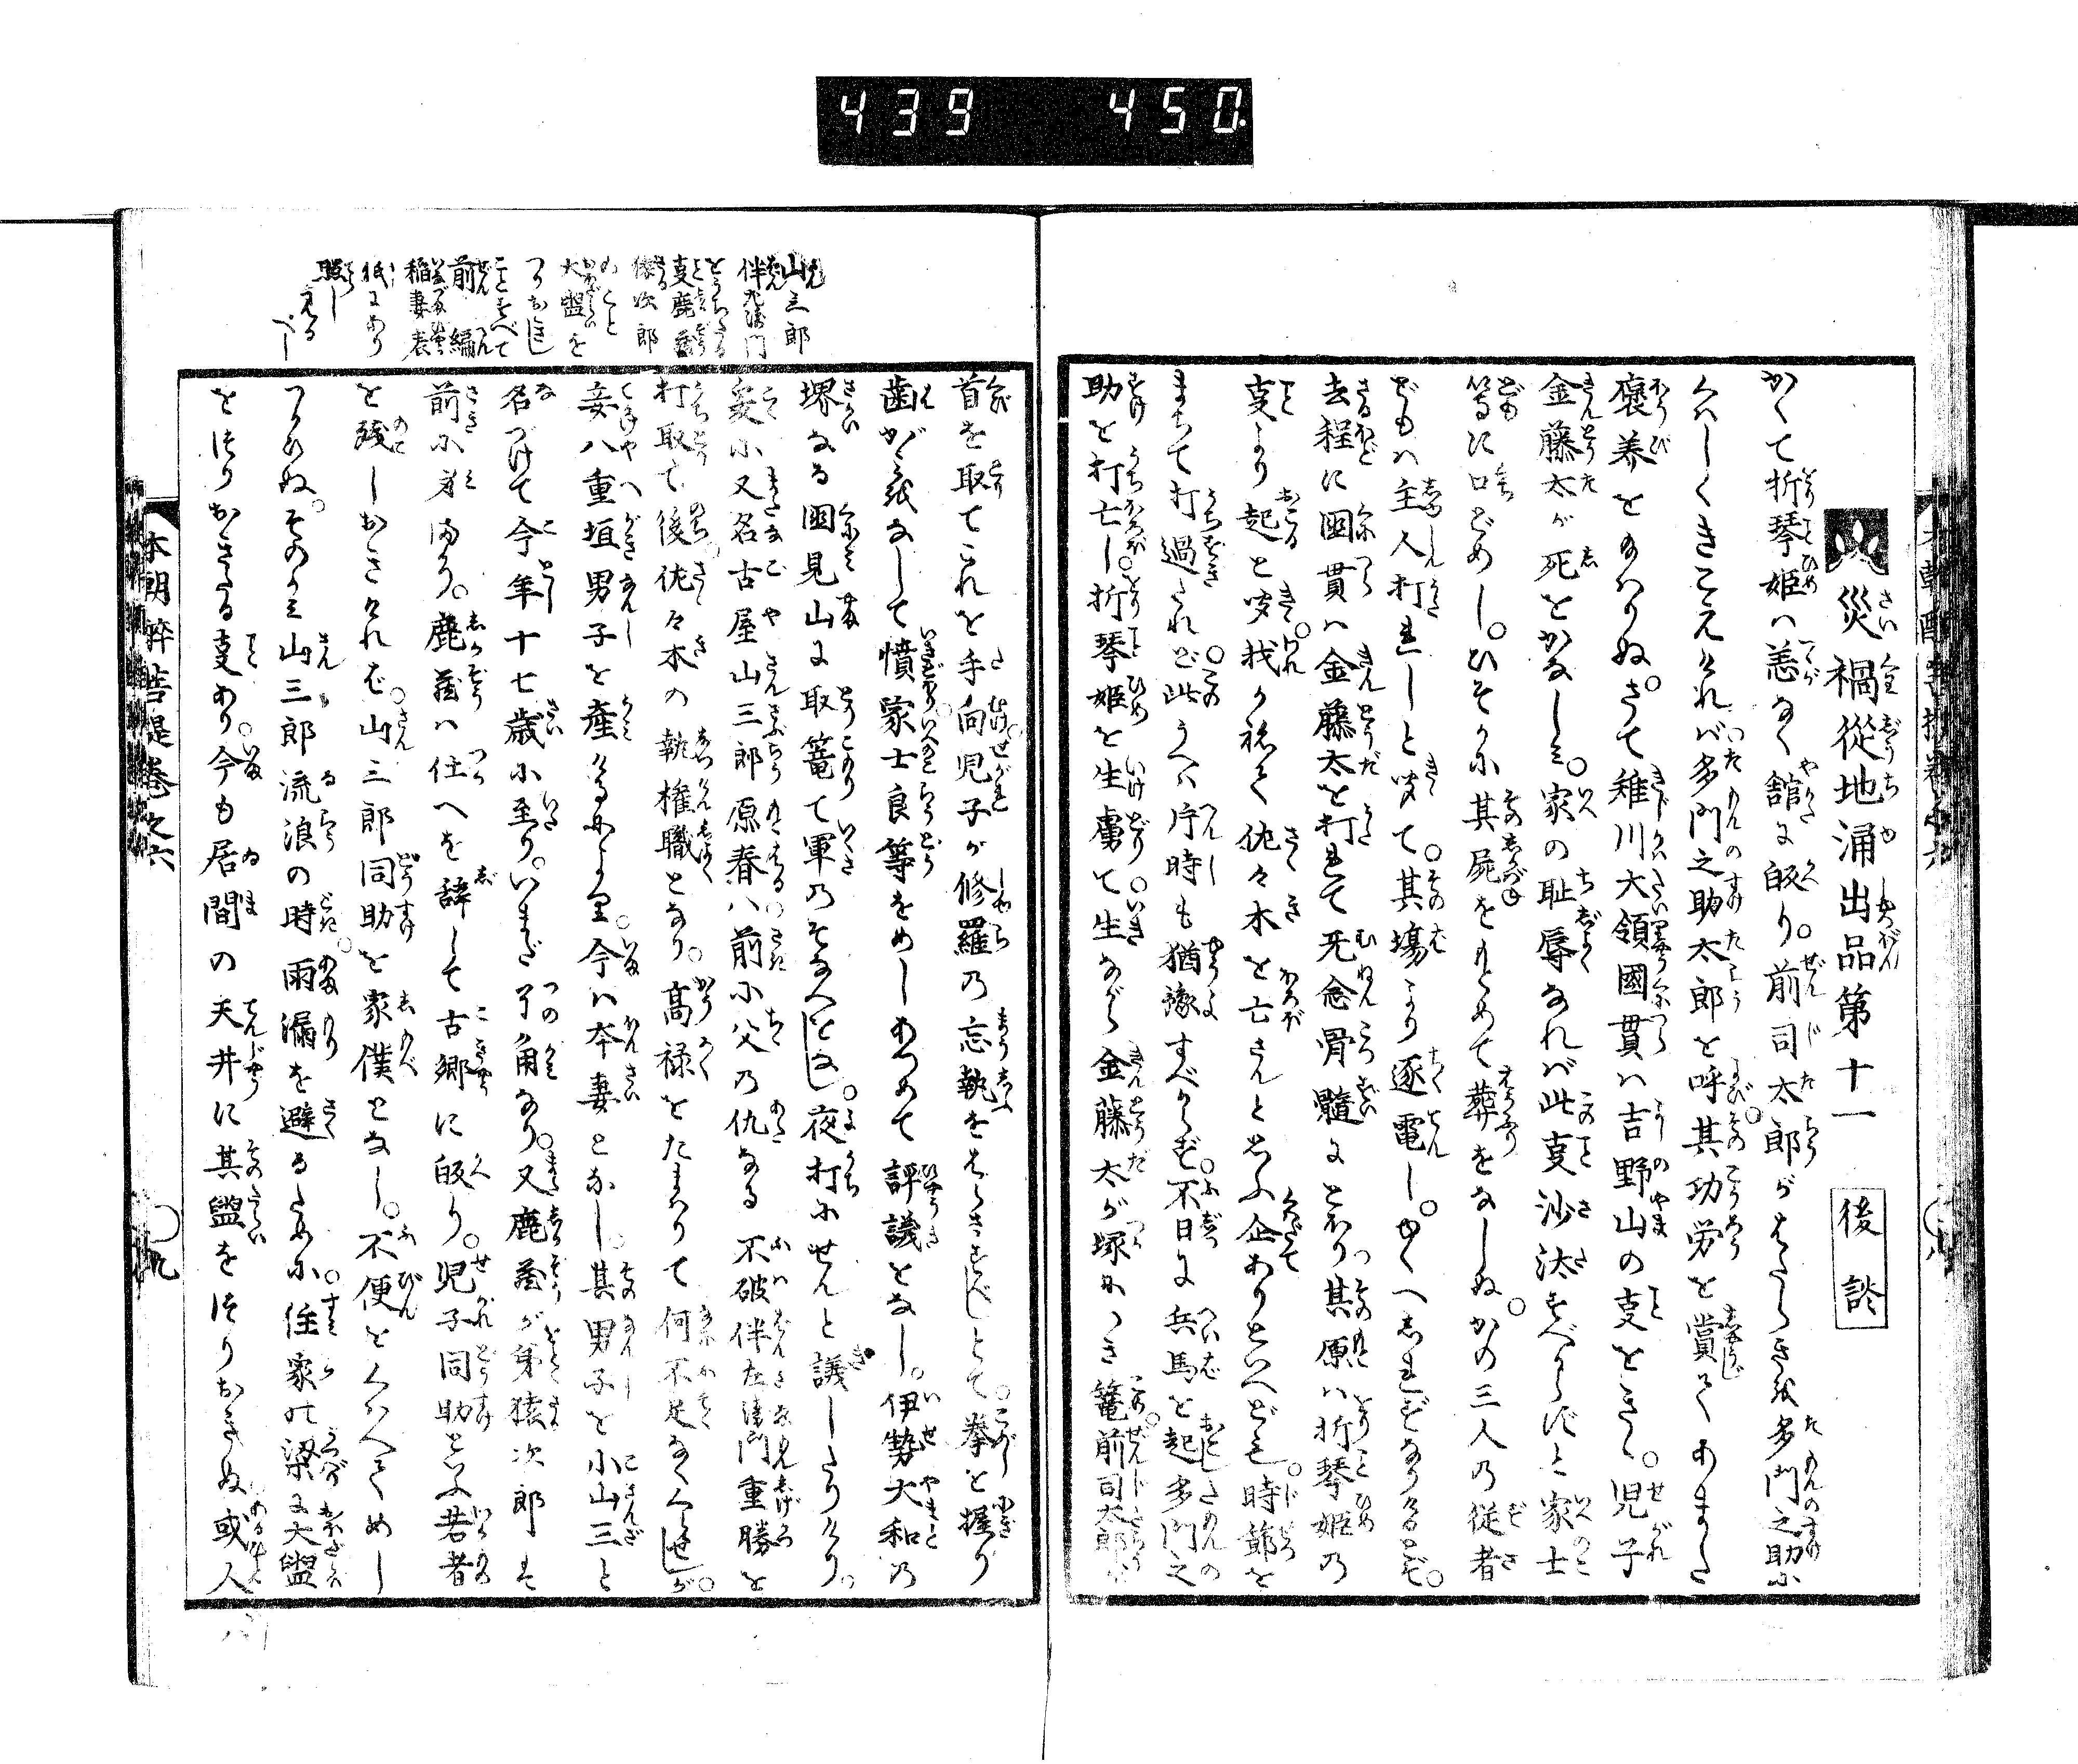 439 450
災禍從地涌出品第十一 後談
かくて折琴姫ハ恙なく舘に皈り。前司太郎がはたらきを多門之助に
くハしくきこえけれバ多門之助太郎を呼其功労を賞てくあまた
褒美をたまハりぬ。さて雉川大領國貫ハ吉野山の叓をきゝ。児子
金藤太が死をかなしミ。家の耻辱なれバ此叓沙汰すべからずと家士
等に口どめし。ひそかに其屍をもとめて葬をなしぬ。かの三人の從者
どもハ主人打れしと聞て。其場より逐電し。ゆくへしれずなりけるとぞ。
去程に國貫ハ金藤太を打れて无念骨髓にとほり其原ハ折琴姫の
叓より起と聞我か
佐々木を亡さんと思ふ企ありといへども時節を
まちて打過たれど此うへハ片時も猶豫すべからず。不日に兵馬を起多門之
助を打亡し。折琴姫を生虜て生ながら金藤太が塚につき篭前司太郎が
首を取てこれを手向児子が修羅の忘執をはらさすべしとて。拳を握り
歯がみをなして憤家士良等をめしあつめて評議をなし。伊勢大和の
堺なる國見山に取篭て軍のそなへをなし。夜打にせんと議したりけり。
爰に又名古屋山三郎原春ハ前に父の仇なる不破伴左衛門重勝を
打取て後佐々木の執權職となり。高禄をたまハりて何不足なくくらせしが。
妾八重垣男子を產けるにより。今ハ本妻となし。其男子を小山三と
名づけて今年十七歳に至り。いまだ丫角なり。又鹿蔵が弟猿次郎は
前に身まかり。鹿蔵ハ仕へを辞して古郷に皈り。児子同助といふ若者
を残しおきければ。山三郎同助を家僕となし。不便をくハへてめし
つかひぬ。そのかミ山三郎流浪の時。雨漏を避るために。住家の梁に大盥
をつりおきたる叓あり。今も居間の天井に其盥をつりおきぬ或人
山三郎
伴左衛門
をうちたる
叓鹿蔵
猿次郎
のこと
大盥を
つりおきし
ことすべて
前編
稲妻表
紙にあり
照し
見る
べし
本朝酔菩提巻之六 ○九